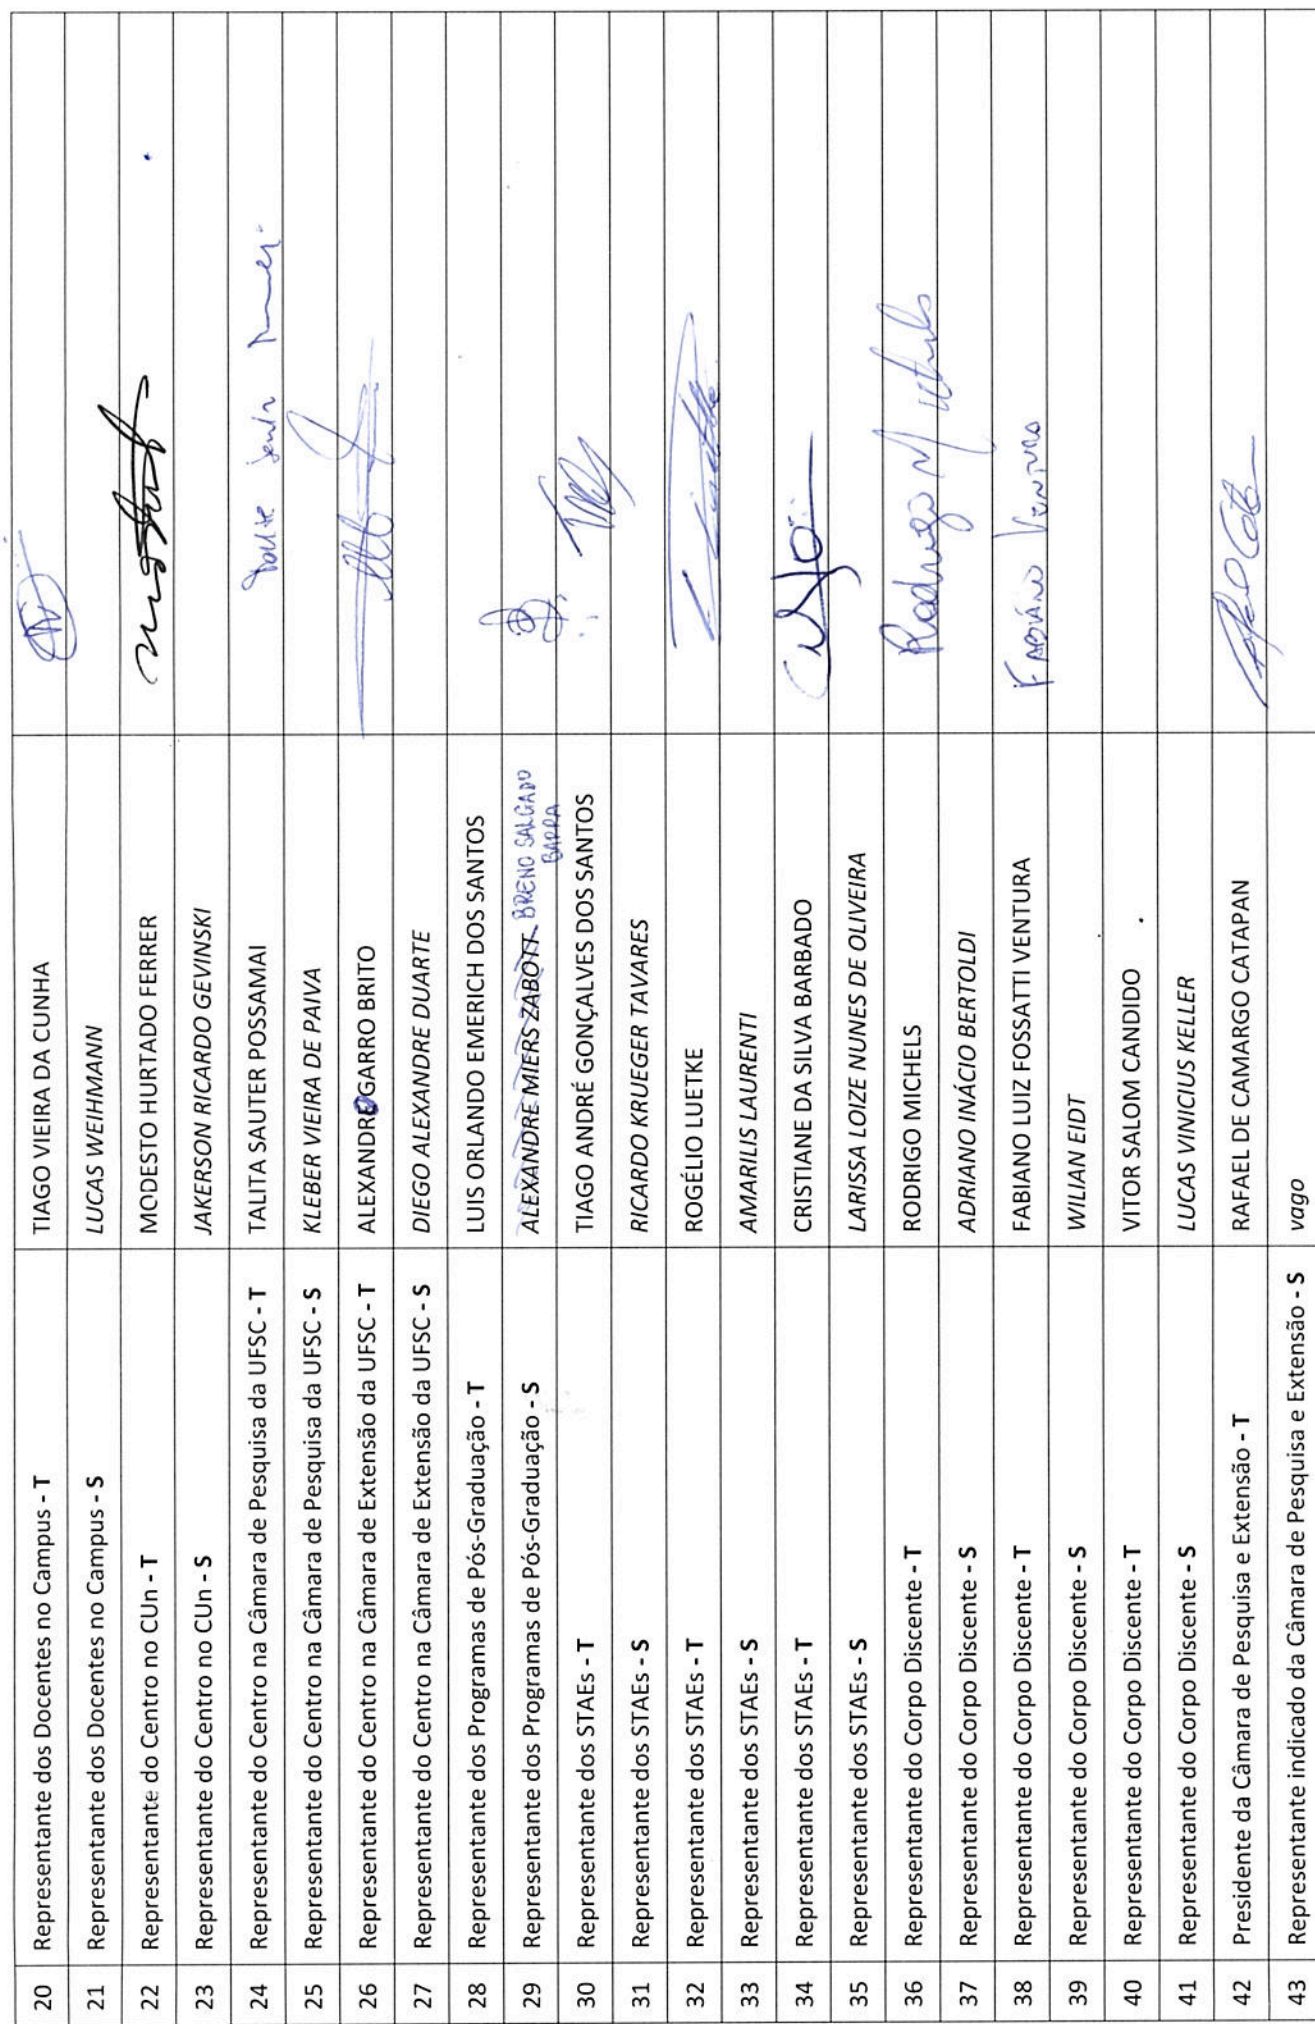 20 Representante dos Docentes no Campus - T TIAGO VIEIRA DA CUNHA
21 Representante dos Docentes no Campus - S LUCAS WEIHMANN
22 Representante do Centro no CUn - T MODESTO HURTADO FERRER
23 Representante do Centro no CUn - S JAKERSON RICARDO GEVINSKI
24 Representante do Centro na Câmara de Pesquisa da UFSC - T TALITA SAUTER POSSAMAI
25 Representante do Centro na Câmara de Pesquisa da UFSC - S KLEBER VIEIRA DE PAIVA
26 Representante do Centro na Câmara de Extensão da UFSC - T ALEXANDRO GARRO BRITO
27 Representante do Centro na Câmara de Extensão da UFSC - S DIEGO ALEXANDRE DUARTE
28 Representante dos Programas de Pós-Graduação - T LUIS ORLANDO EMERICH DOS SANTOS
29 Representante dos Programas de Pós-Graduação - S ALEXANDRE MIERS ZABOTT BRENO SALGADO
BARRA
30 Representante dos STAEs - T TIAGO ANDRÉ GONÇALVES DOS SANTOS
31 Representante dos STAEs - S RICARDO KRUEGER TAVARES
32 Representante dos STAEs - T ROGÉLIO LUETKE
33 Representante dos STAEs - S AMARILIS LAURENTI
34 Representante dos STAEs - T CRISTIANE DA SILVA BARBADO
35 Representante dos STAEs - S LARISSA LOIZE NUNES DE OLIVEIRA
36 Representante do Corpo Discente - T RODRIGO MICHELS Rodrigo
37 Representante do Corpo Discente - S ADRIANO INÁCIO BERTOLDI
38 Representante do Corpo Discente - T FABIANO LUIZ FOSSATTI VENTURA FABIANO VENTURA
39 Representante do Corpo Discente - S WILIAN EIDT
40 Representante do Corpo Discente - T VITOR SALOM CANDIDO
41 Representante do Corpo Discente - S LUCAS VINICIUS KELLER
42 Presidente da Câmara de Pesquisa e Extensão - T RAFAEL DE CAMARGO CATAPAN
43 Representante indicado da Câmara de Pesquisa e Extensão - S vago